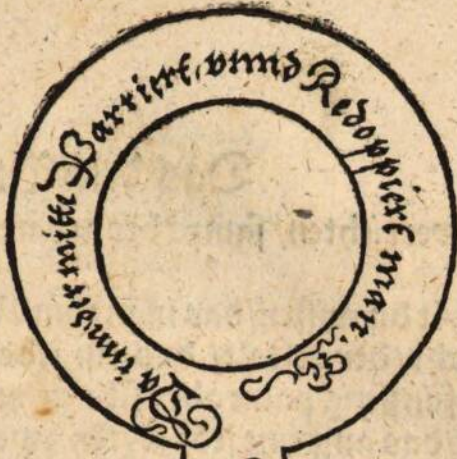 Da inn der mitte Parriert, vnnd Redoppiert man.